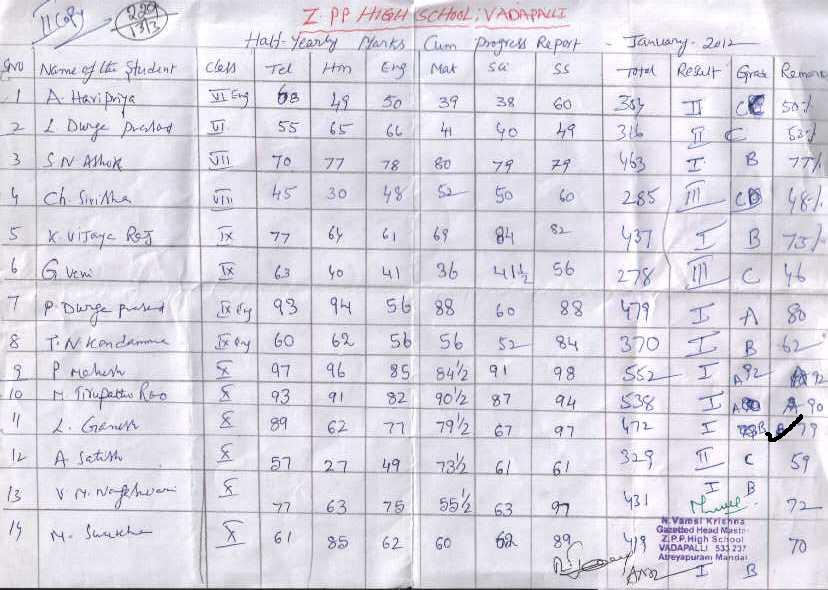 II Copy
229
13/3
Z.PP HIGH SCHOOL; VADAPALLI
Half-Yearly Marks Cum Progress Report - January-2012
SNO Name of the Student Class Tel Hin Eng Mat Sci SS Total Result Grade Remark
1 A. Haripriya VI Eng 68 49 50 39 38 60 II C 50%
2 L. Durga prasad VI 55 65 66 41 40 49 316 II C 53%
3 S N Ashok VII 70 77 78 80 79 79 463 I B 77%
4 Ch. Sirisha VIII 45 30 48 52 50 60 285 III C 48%
5 K. Vijaya Raj IX 77 64 61 69 84 82 437 I B 73%
6 G veni IX 63 40 41 36 41½ 56 278 III C 46
7 P. Durga prasad IX Eng 93 94 56 88 60 88 479 I A 80
8 T. N Kondamma IX Eng 60 62 56 56 52 84 370 I B 62
9 P Mahesh X 97 96 85 84½ 91 98 552 I A 92 A 92
10 M. Tirupatho Rao X 93 91 82 90½ 87 94 538 I A 90 A-90
11 L. Ganesh X 89 62 77 79½ 67 97 472 I B 79
12 A Satish X 57 27 49 73½ 61 61 329 II C 59
13 V M. Nageshwari X 77 63 75 55½ 63 97 431 I B 72
14 M. X 61 85 62 60 62 89 419 I B 70
N. Vamsi Krishna
Gazetted Head Master
Z.P.P.High School
VADAPALLI 533 237
Atreyapuram Mandal